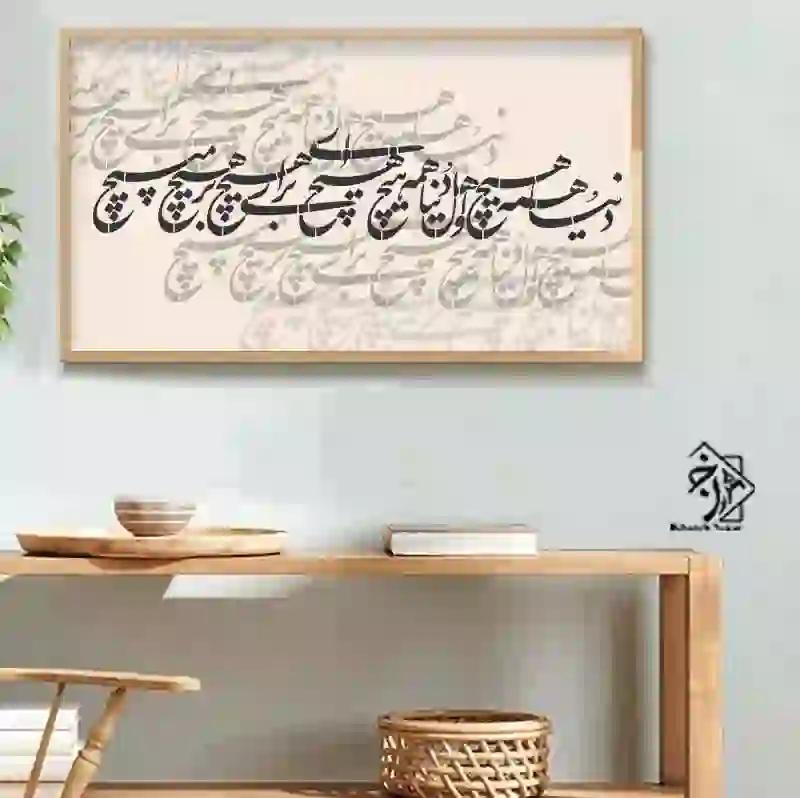 دنیا همه هیچ و اهل دنیا همه هیچ ای هیچ برای هیچ بر هیچ مپیچ